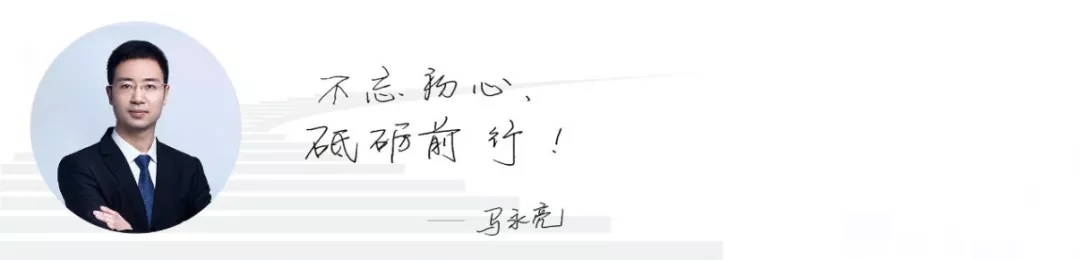 不忘初心、
砥砺前行！
——马永亮